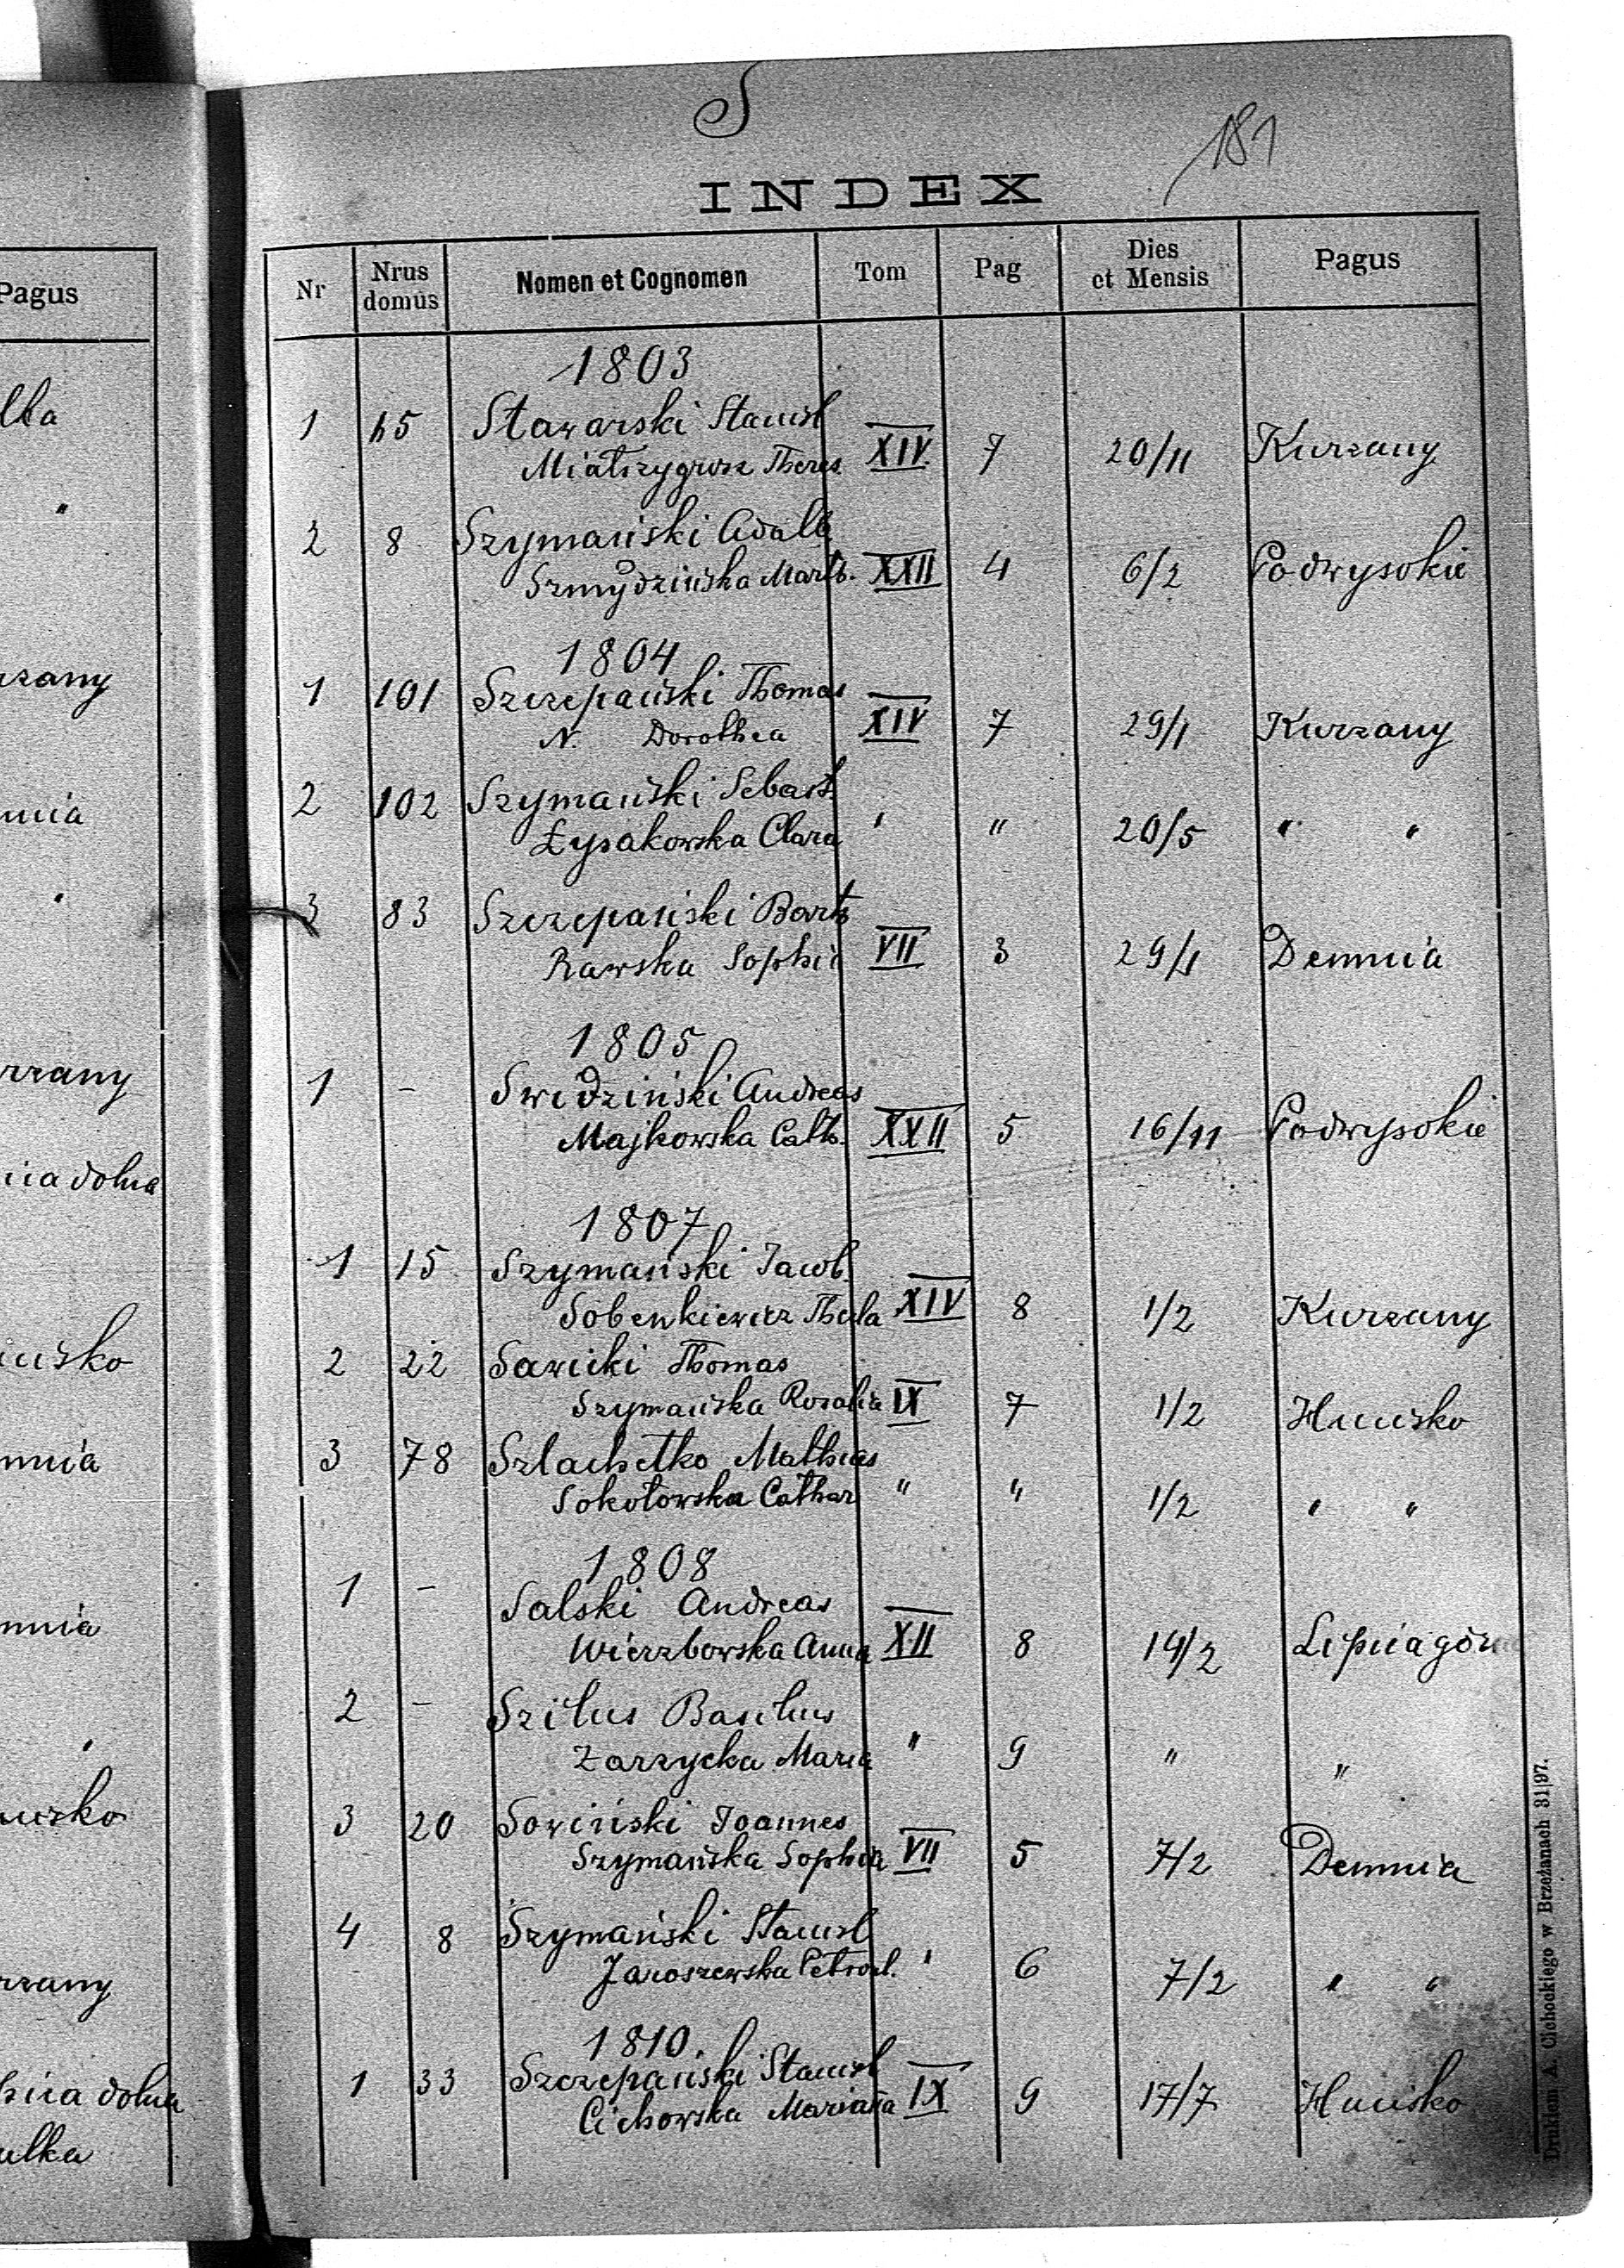 Pagus
lka
"
rzany
mnia
"
rzany
nia dolna
uisko
mnia
mnia
"
uisko
rzany
nia dolna
ulka
S
181
INDEX
Nr Nrus domus Nomen et Cognomen Tom Pag Dies et Mensis Pagus
1803
1 65 Stawarski Stanisl
Miatrzygrosz Theres XIV 7 20/11 Kurzany
2 8 Szymański Adalb.
Szmydzińska Marth. XXII 4 6/2 Podwysokie
1804
1 101 Szczepański Thomas
N. Dorothea XIV 7 29/1 Kurzany
2 102 Szymański Sebast.
Łysakowska Clara " " 20/5 " "
3 83 Szczepański Barth
Rawska Sophia VII 3 29/1 Demnia
1805
1 - Swidziński Andreas
Majkowska Cath. XXII 5 16/11 Podwysokie
1807
1 15 Szymański Jacob.
Sobenkiewicz Thecla XIV 8 1/2 Kurzany
2 22 Sawicki Thomas
Szymańska Rosalia IX 7 1/2 Hucisko
3 78 Szlachetko Mathias
Sokołowska Cathar " " 1/2 " "
1808
1 - Salski Andreas
Wierzbowska Anna XII 8 14/2 Lipnia górn
2 - Szilus Basilius
Zarzycka Maria " 9 " "
3 20 Sowiński Joannes
Szymańska Sophia VII 5 7/2 Demnia
4 8 Szymański Stanisl
Jaroszewska Petronl. " 6 7/2 " "
1810.
1 33 Szczepański Stanisl
Cichowska Mariana IX 9 17/7 Hucisko
Drukiem A. Cichockiego w Brzeżanach 31|97.